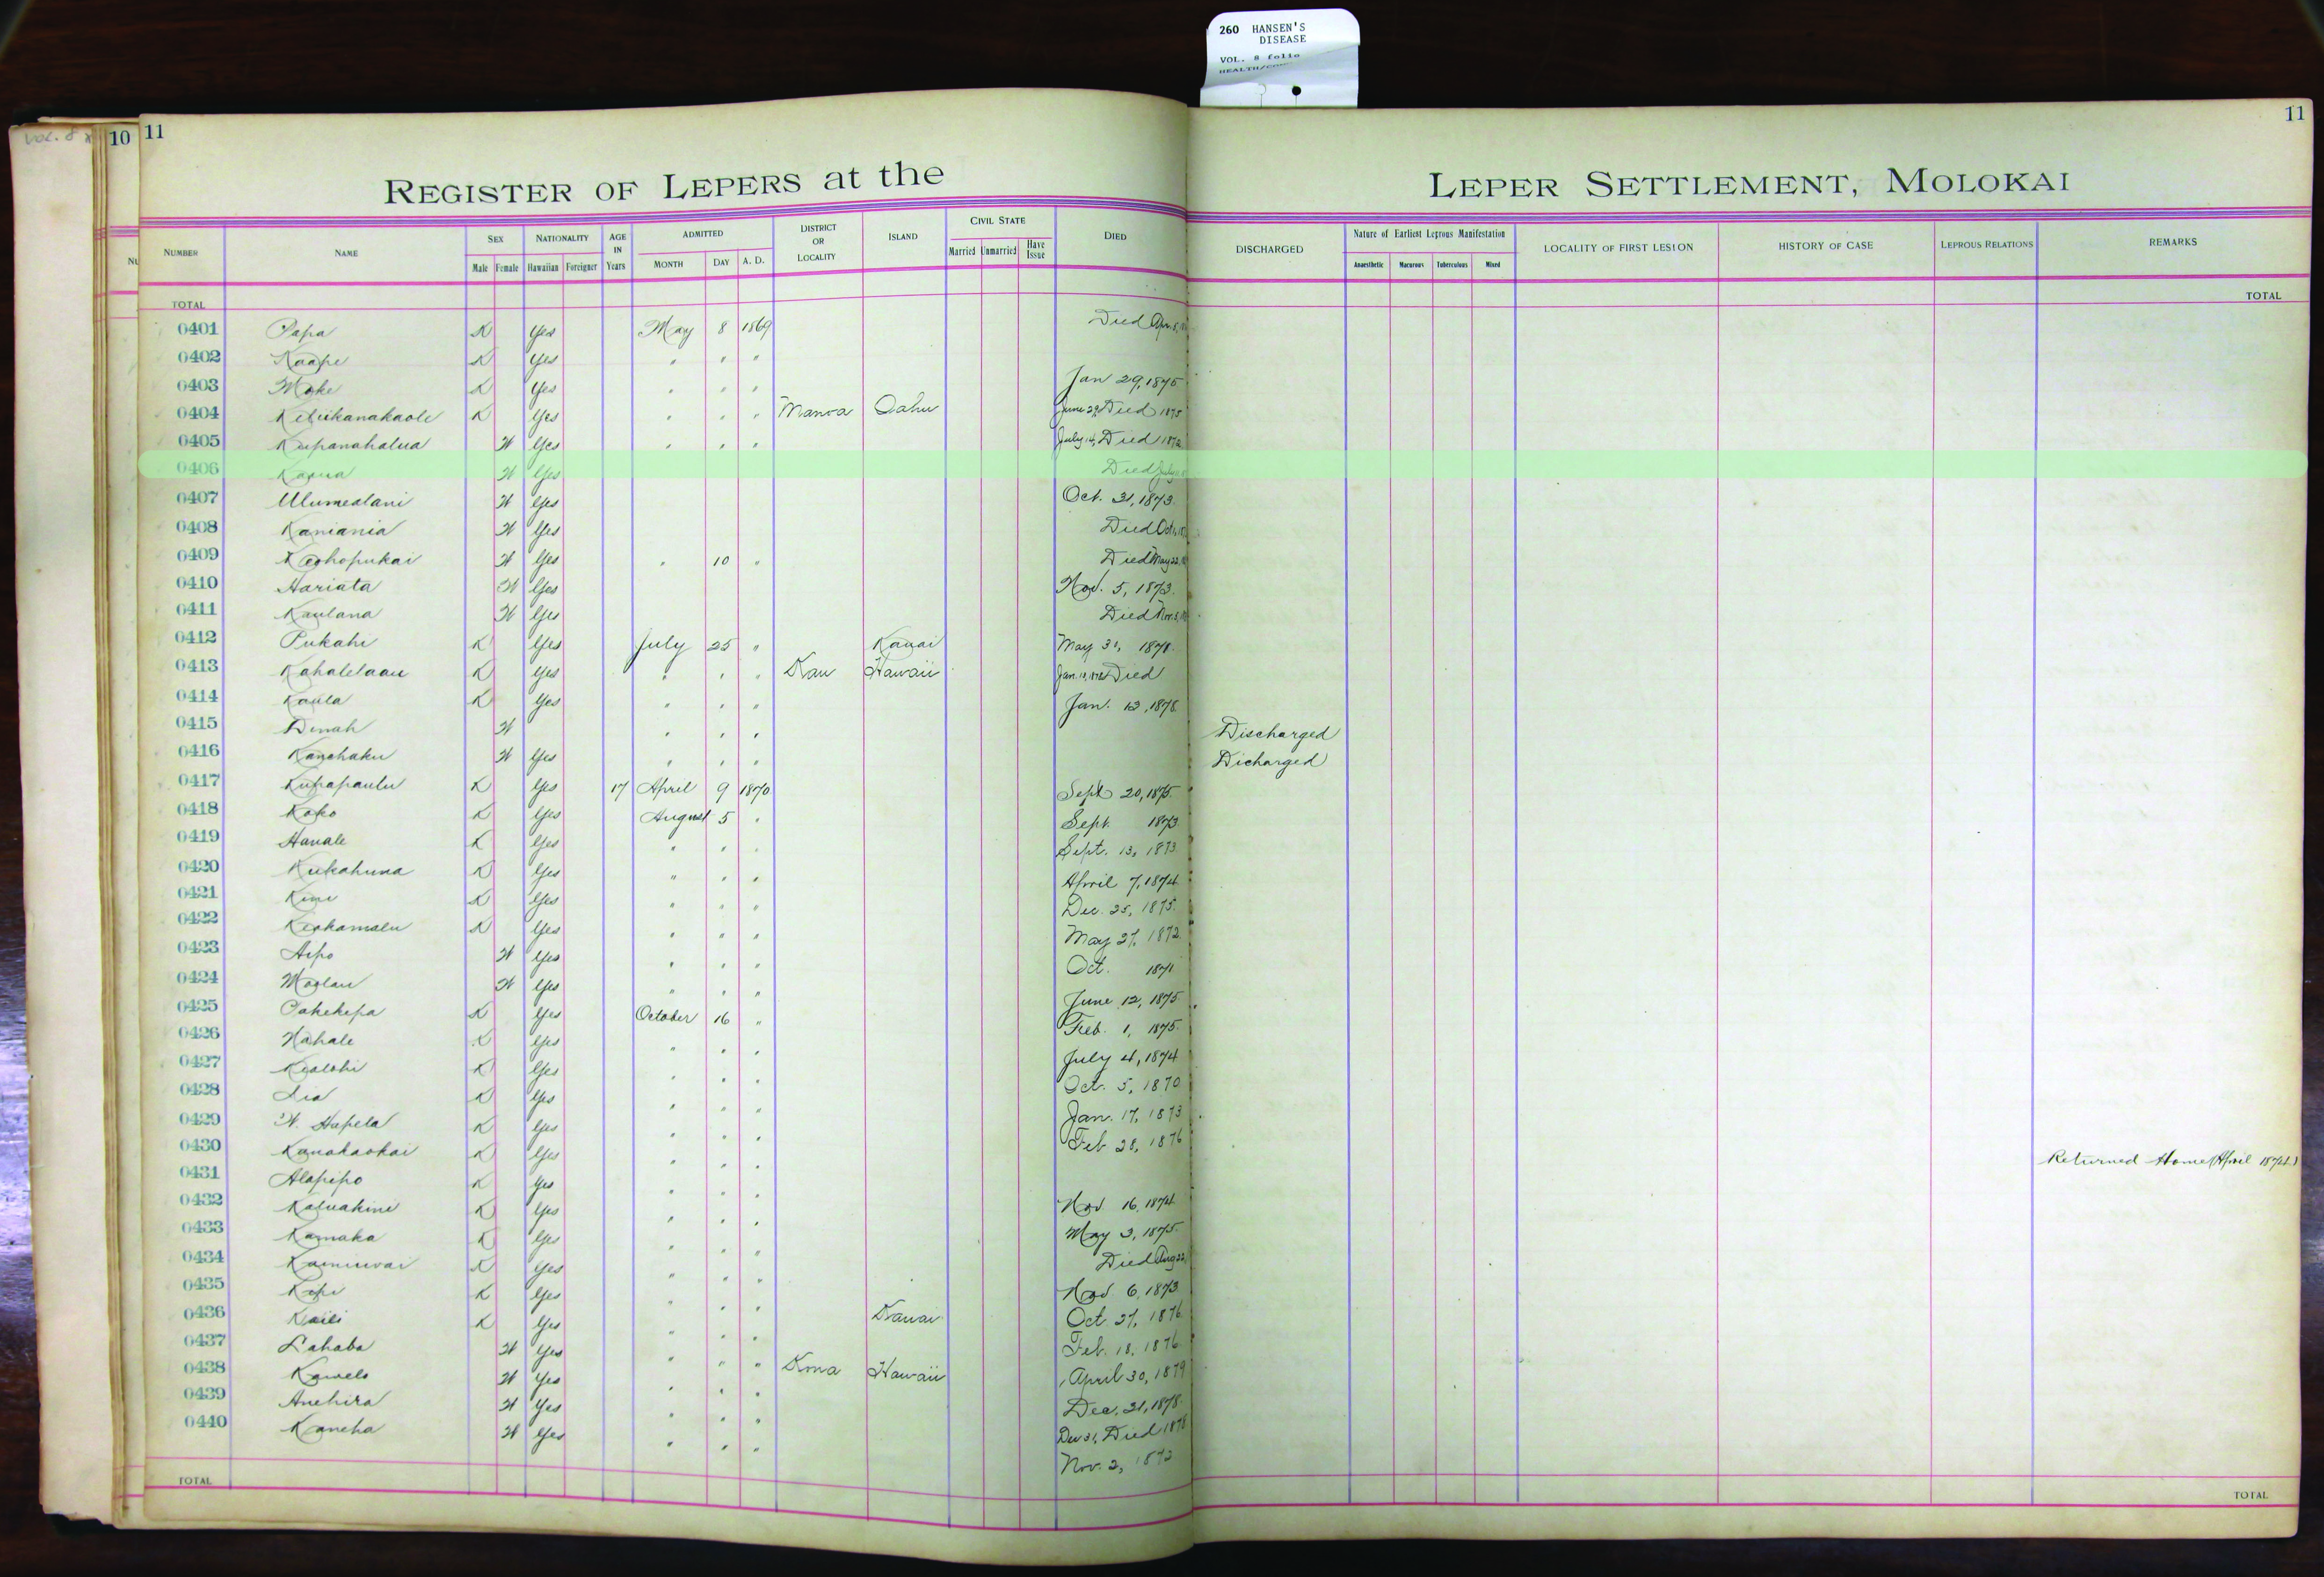 260 HANSEN'S
DISEASE
VOL. 8 folio
VOL. 8
10 11
11
REGISTER OF LEPERS at the LEPER SETTLEMENT, MOLOKAI
NUMBER NAME SEX Male Female NATIONALITY Hawaiian Foreigner AGE IN Years ADMITTED MONTH DAY A. D. DISTRICT OR LOCALITY ISLAND CIVIL STATE Married Unmarried Have Issue DIED DISCHARGED Nature of Earliest Leprous Manifestation Anaesthetic Macurous Tuberculous Mixed LOCALITY OF FIRST LESION HISTORY OF CASE LEPROUS RELATIONS REMARKS
TOTAL TOTAL
0401 Papa K Yes May 8 1869 Died Apr. 8,
0402 Kaape K Yes " " "
0403 Moke K Yes " " " Jan 29, 1875
0404 Keliikanakaole K Yes " " " Manoa Oahu June 29, Died 1875
0405 Kupanahalua W Yes " " " July 14, Died 1872
0406 Kapua W Yes Died July
0407 Ulumealani W Yes Oct. 31, 1873.
0408 Kaniania W Yes Died Oct 1,
0409 Keohopukai W Yes " 10 " Died May 22,
0410 Hariata W Yes Nov. 5, 1873.
0411 Kaulana W Yes Died Nov. 3,
0412 Pukahi K Yes July 25 " Kauai May 31, 1878.
0413 Kahalelaau K Yes " " " Kau Hawaii Jan. Died
0414 Kaula K Yes " " " Jan. 12, 1878.
0415 Dinah W " " " Discharged
0416 Kanohaku W Yes " " " Dicharged
0417 Kupapaulu K Yes 17 April 9 1870 Sept 20, 1875.
0418 Koko K Yes August 5 " Sept. 1873
0419 Hanale K Yes " " " Sept. 13, 1873
0420 Kukahuna K Yes " " " April 7, 1874
0421 Kini K Yes " " " Dec. 25, 1875.
0422 Keohamalu K Yes " " " May 27, 1872.
0423 Aipo W Yes " " " Oct. 1871
0424 Moolau W Yes " " " June 12, 1875
0425 Pahekepa K Yes October 16 " Feb. 1, 1875.
0426 Nahale K Yes " " " July 4, 1874
0427 Kealohi K Yes " " " Oct. 5, 1870
0428 Lia K Yes " " " Jan. 17, 1873
0429 W. Hapela K Yes " " " Feb 28, 1876
0430 Kanakaokai K Yes " " " Returned Home (April 1874)
0431 Alapipo K Yes " " " Nov 16, 1874
0432 Kaluakini K Yes " " " May 3, 1875.
0433 Kamaka K Yes " " " Died Aug 22,
0434 Kaminwai K Yes " " " Nov. 6, 1873
0435 Kepi K Yes " " " Oct. 27, 1876
0436 Kaili K Yes " " " Kauai Feb. 18, 1876
0437 Lahaba W Yes " " " April 30, 1879
0438 Kawelo W Yes " " " Kona Hawaii Dec. 31, 1878.
0439 Anehira W Yes " " " Dec 31, Died 1878
0440 Kaneha W Yes " " " Nov. 2, 1872
TOTAL TOTAL